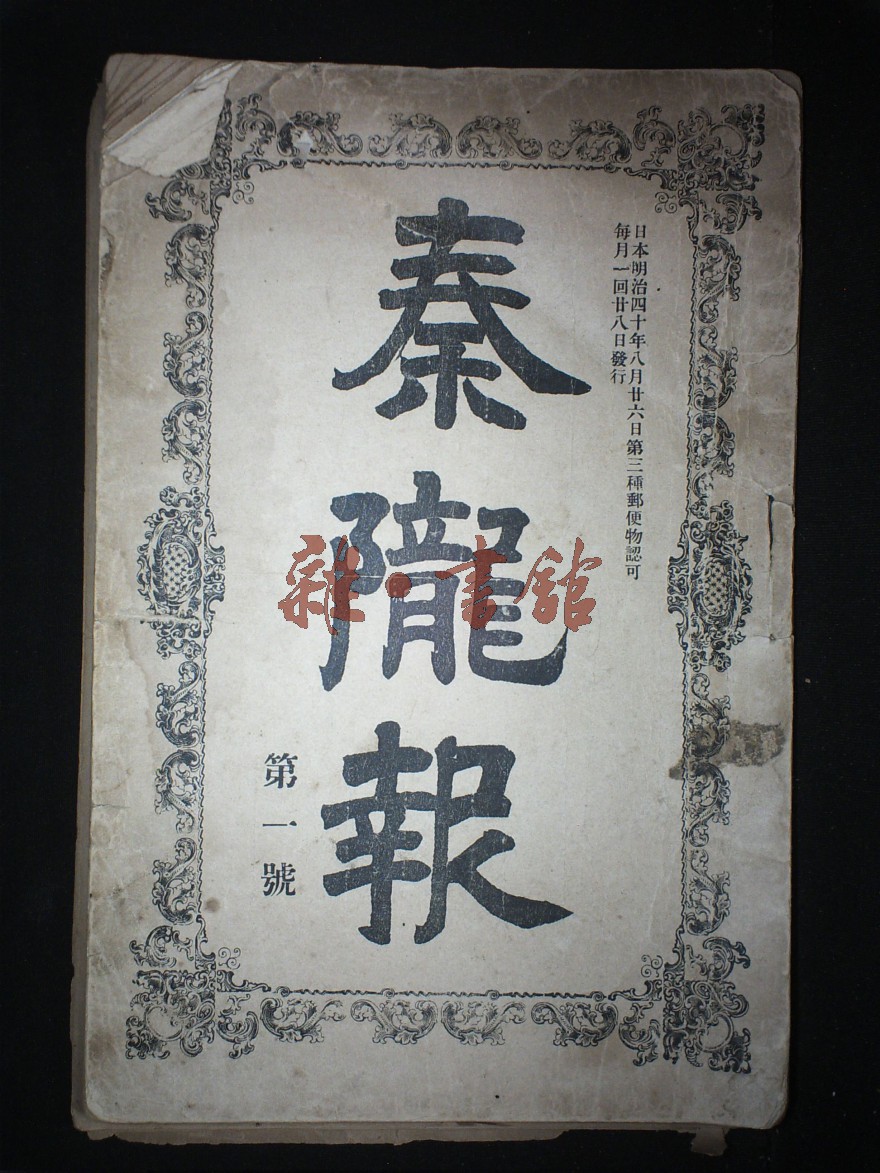 日本明治四十年八月廿六日第三種郵便物認可
每月一回廿八日發行
秦隴報
第一號
雜·書館